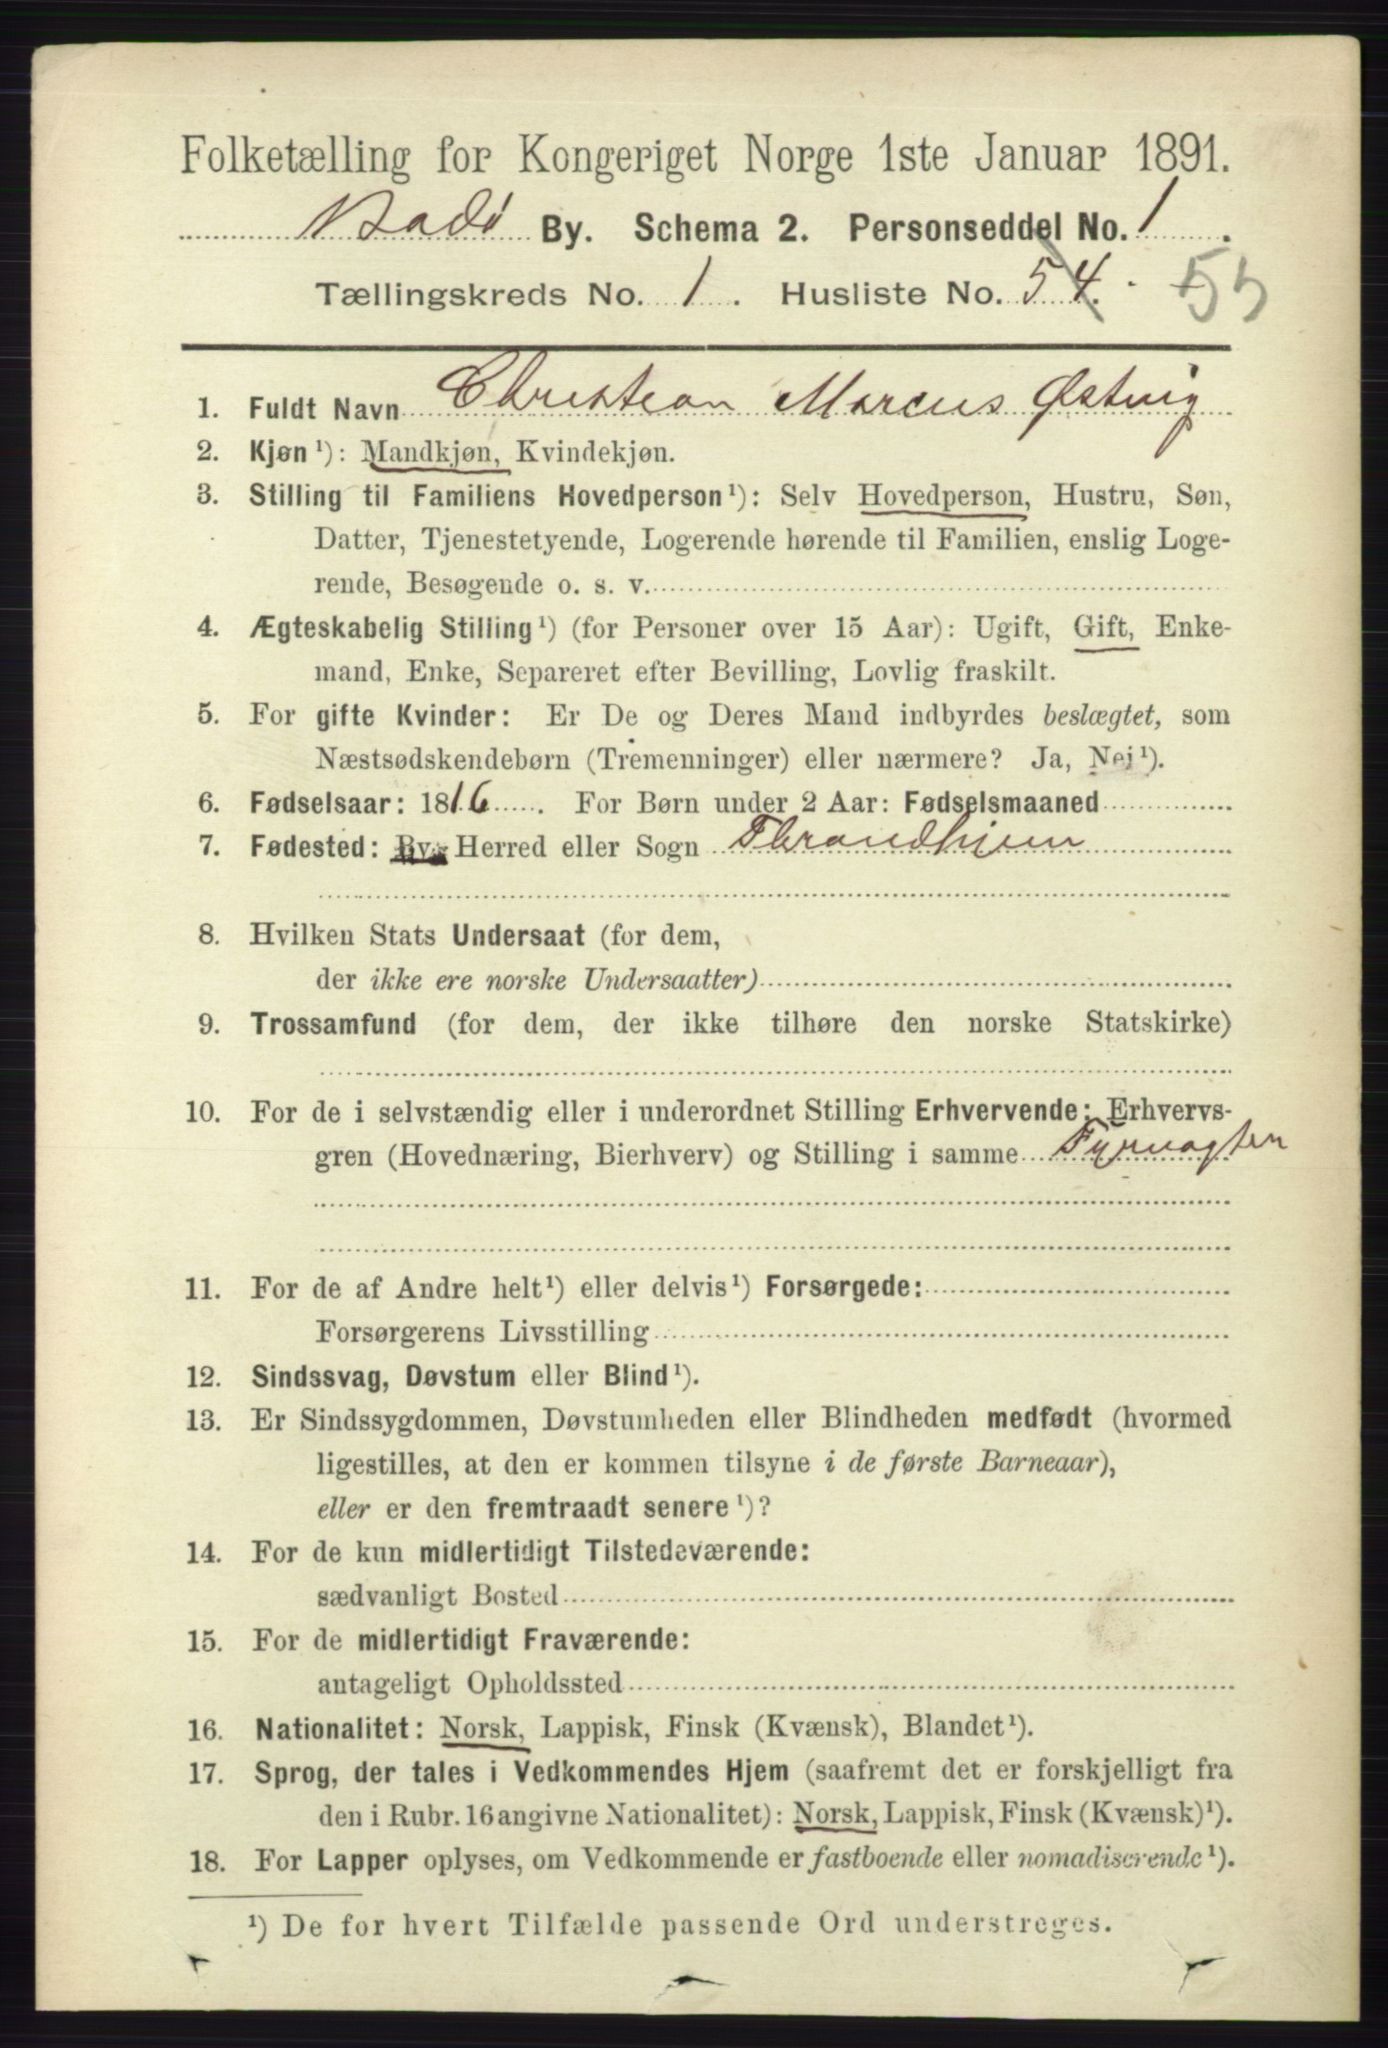 Folketælling for Kongeriget Norge 1ste Januar 1891.
Bodø By. Schema 2. Personseddel No. 1.
Tællingskreds No. 1. Husliste No. 54. 55
1. Fuldt Navn Christian Marcus Østvig
2. Kjøn¹): Mandkjøn, Kvindekjøn.
3. Stilling til Familiens Hovedperson¹): Selv Hovedperson, Hustru, Søn,
Datter, Tjenestetyende, Logerende hørende til Familien, enslig Loge-
rende, Besøgende o. s. v.
4. Ægteskabelig Stilling¹) (for Personer over 15 Aar): Ugift, Gift, Enke-
mand, Enke, Separeret efter Bevilling, Lovlig fraskilt.
5. For gifte Kvinder: Er De og Deres Mand indbyrdes beslægtet, som
Næstsødskendebørn (Tremenninger) eller nærmere? Ja, Nej¹).
6. Fødselsaar: 1816. For Børn under 2 Aar: Fødselsmaaned
7. Fødested: By, Herred eller Sogn Thrandhjem
8. Hvilken Stats Undersaat (for dem,
der ikke ere norske Undersaatter)
9. Trossamfund (for dem, der ikke tilhøre den norske Statskirke)
10. For de i selvstændig eller i underordnet Stilling Erhvervende: Erhvervs-
gren (Hovednæring, Bierhverv) og Stilling i samme Fyrvogter
11. For de af Andre helt¹) eller delvis¹) Forsørgede:
Forsørgerens Livsstilling
12. Sindssvag, Døvstum eller Blind¹).
13. Er Sindssygdommen, Døvstumheden eller Blindheden medfødt (hvormed
ligestilles, at den er kommen tilsyne i de første Barneaar),
eller er den fremtraadt senere¹)?
14. For de kun midlertidigt Tilstedeværende:
sædvanligt Bosted
15. For de midlertidigt Fraværende:
antageligt Opholdssted
16. Nationalitet: Norsk, Lappisk, Finsk (Kvænsk), Blandet¹).
17. Sprog, der tales i Vedkommendes Hjem (saafremt det er forskjelligt fra
den i Rubr. 16 angivne Nationalitet): Norsk, Lappisk, Finsk (Kvænsk)¹).
18. For Lapper oplyses, om Vedkommende er fastboende eller nomadiserende¹).
¹) De for hvert Tilfælde passende Ord understreges.